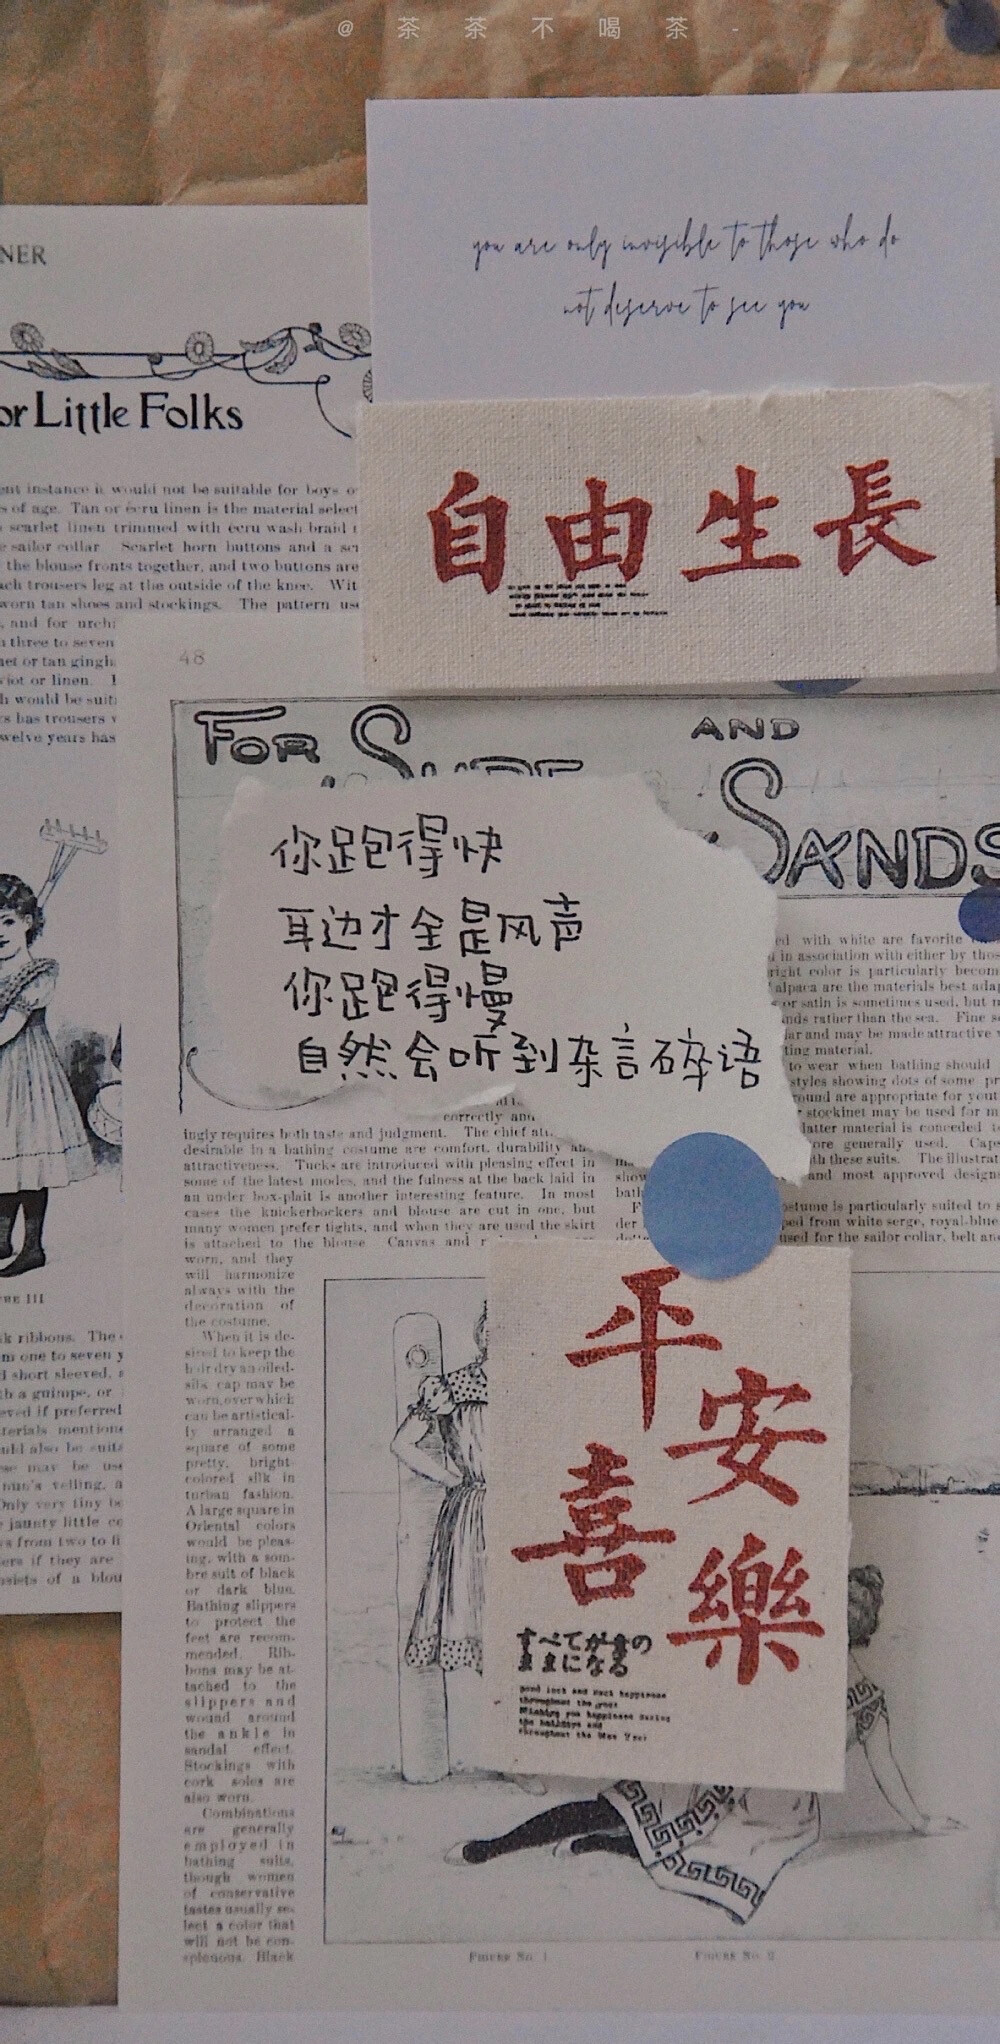 @茶茶不喝茶-
you are only invisible to those who do
not deserve to see you
NER
or Little Folks
自由生長
ent instance it would not be suitable for boys
s of age. Tan or écru linen is the material select
scarlet linen trimmed with écru wash braid
sailor collar Scarlet horn buttons and a
the blouse fronts together, and two buttons are
ach trousers leg at the outside of the knee. Wit
worn tan shoes and stockings. The pattern
and for
three to seven
or tan
or linen.
would be
has trousers
twelve years has
48
FOR
AND
SANDS
你跑得快
耳边才全是风声
你跑得慢
自然会听到杂言碎语
with white are favorite
in association with either by
color is particularly
alpaca are the materials best
or satin is sometimes used, but
rather than the sea. Fine
and may be made attractive
material.
to wear when bathing should
styles showing dots of some
are appropriate for
stockinet may be used for
latter material is conceded
generally used.
these suits. The
and most approved
costume is particularly suited to
from white serge, royal-blue
used for the sailor collar, belt
correctly and
ingly requires both taste and judgment. The chief
desirable in a bathing costume are comfort, durability
attractiveness. Tucks are introduced with pleasing effect in
some of the latest modes, and the fulness at the back laid in
an under box-plait is another interesting feature. In most
cases the knickerbockers and blouse are cut in one, but
many women prefer tights, and when they are used the skirt
is attached to the blouse Canvas and
worn, and they
will harmonize
always with the
decoration of
the costume.
When it is de-
sired to keep the
hair dry an oiled-
silk cap may be
worn, over which
can be artistical-
ly arranged a
square of some
pretty, bright-
colored silk in
turban fashion.
A large square in
Oriental colors
would be pleas-
ing, with a som-
bre suit of black
or dark blue.
Bathing slippers
to protect the
feet are recom-
mended. Rib-
bons may be at-
tached to the
slippers and
wound around
the ankle in
sandal effect.
Stockings with
cork soles are
also worn.
Combinations
are generally
employed in
bathing suits,
though women
of conservative
tastes usually se-
lect a color that
will not be con-
spicuous. Black
III
ribbons. The
one to seven
short sleeved,
a guimpe, or
if preferred
mentione
also be
may be
veiling,
Only very tiny
jaunty little
from two to
if they are
of a
平安
喜樂
すべてが喜の
good luck and much happiness
throughout the year
Wishing you happiness during
the holidays and
throughout the New Year
FIGURE No. 1
FIGURE No. 2